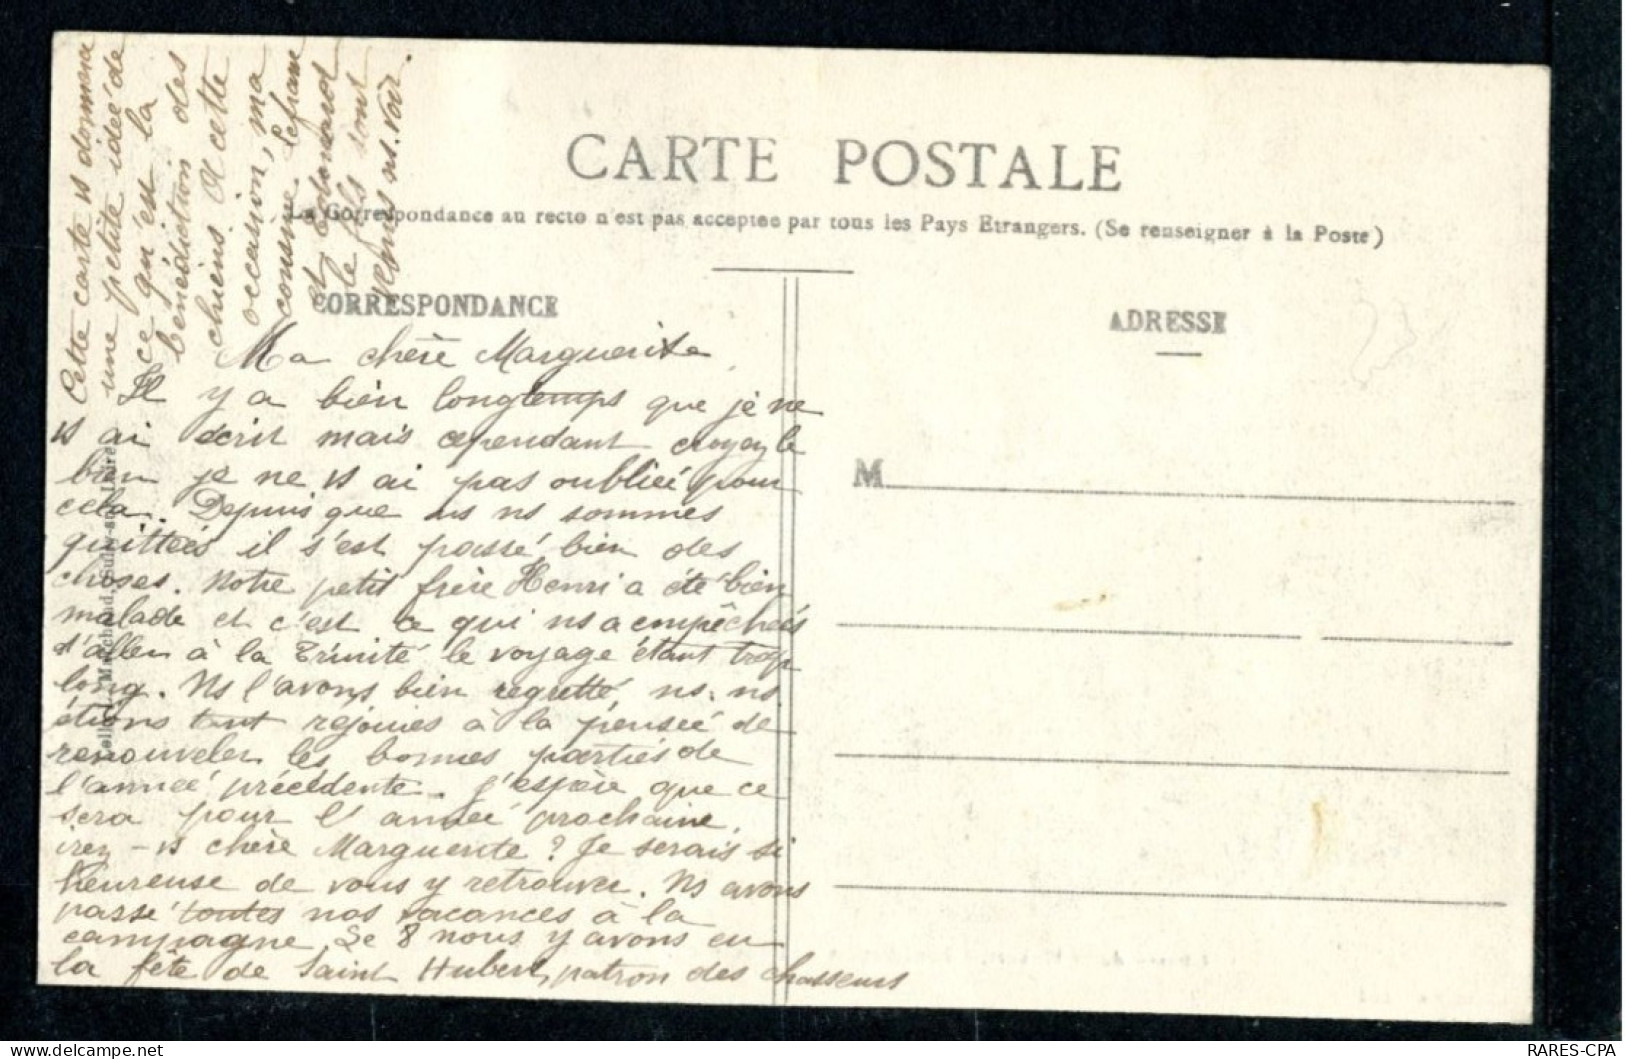 CARTE POSTALE
La Correspondance au recto n'est pas acceptee par tous les Pays Etrangers. (Se renseigner à la Poste)
CORRESPONDANCE
ADRESSE
M
Ma chère Marguerite
Il y a bien longtemps que je ne
vs ai écrit mais cependant croyez le
bien je ne vs ai pas oubliée pour
cela. Depuis que ns ns sommes
quittées il s'est passé bien des
choses. Notre petit frère Henri a été bien
malade et c'est ce qui ns a empêchées
d'aller à la Trinité le voyage étant trop
long. Ns l'avons bien regretté ns. ns
étions tant rejouies à la pensée de
renouveler les bonnes parties de
l'année précédente. J'espère que ce
sera pour l'année prochaine.
irez-vs chère Marguerite? Je serais si
heureuse de vous y retrouver. Ns avons
passé toutes nos vacances à la
campagne. Le 8 nous y avons eu
la fête de Saint Hubert, patron des chasseurs
Cette carte vs donnera
une petite idée de
ce qu'est la
bénédiction des
chiens. A cette
occasion, ma
cousine Lefranc
et Edouard
le fils sont
venus ns. voir.
Marchand, Sully-sur-Loire
RARES-CPA